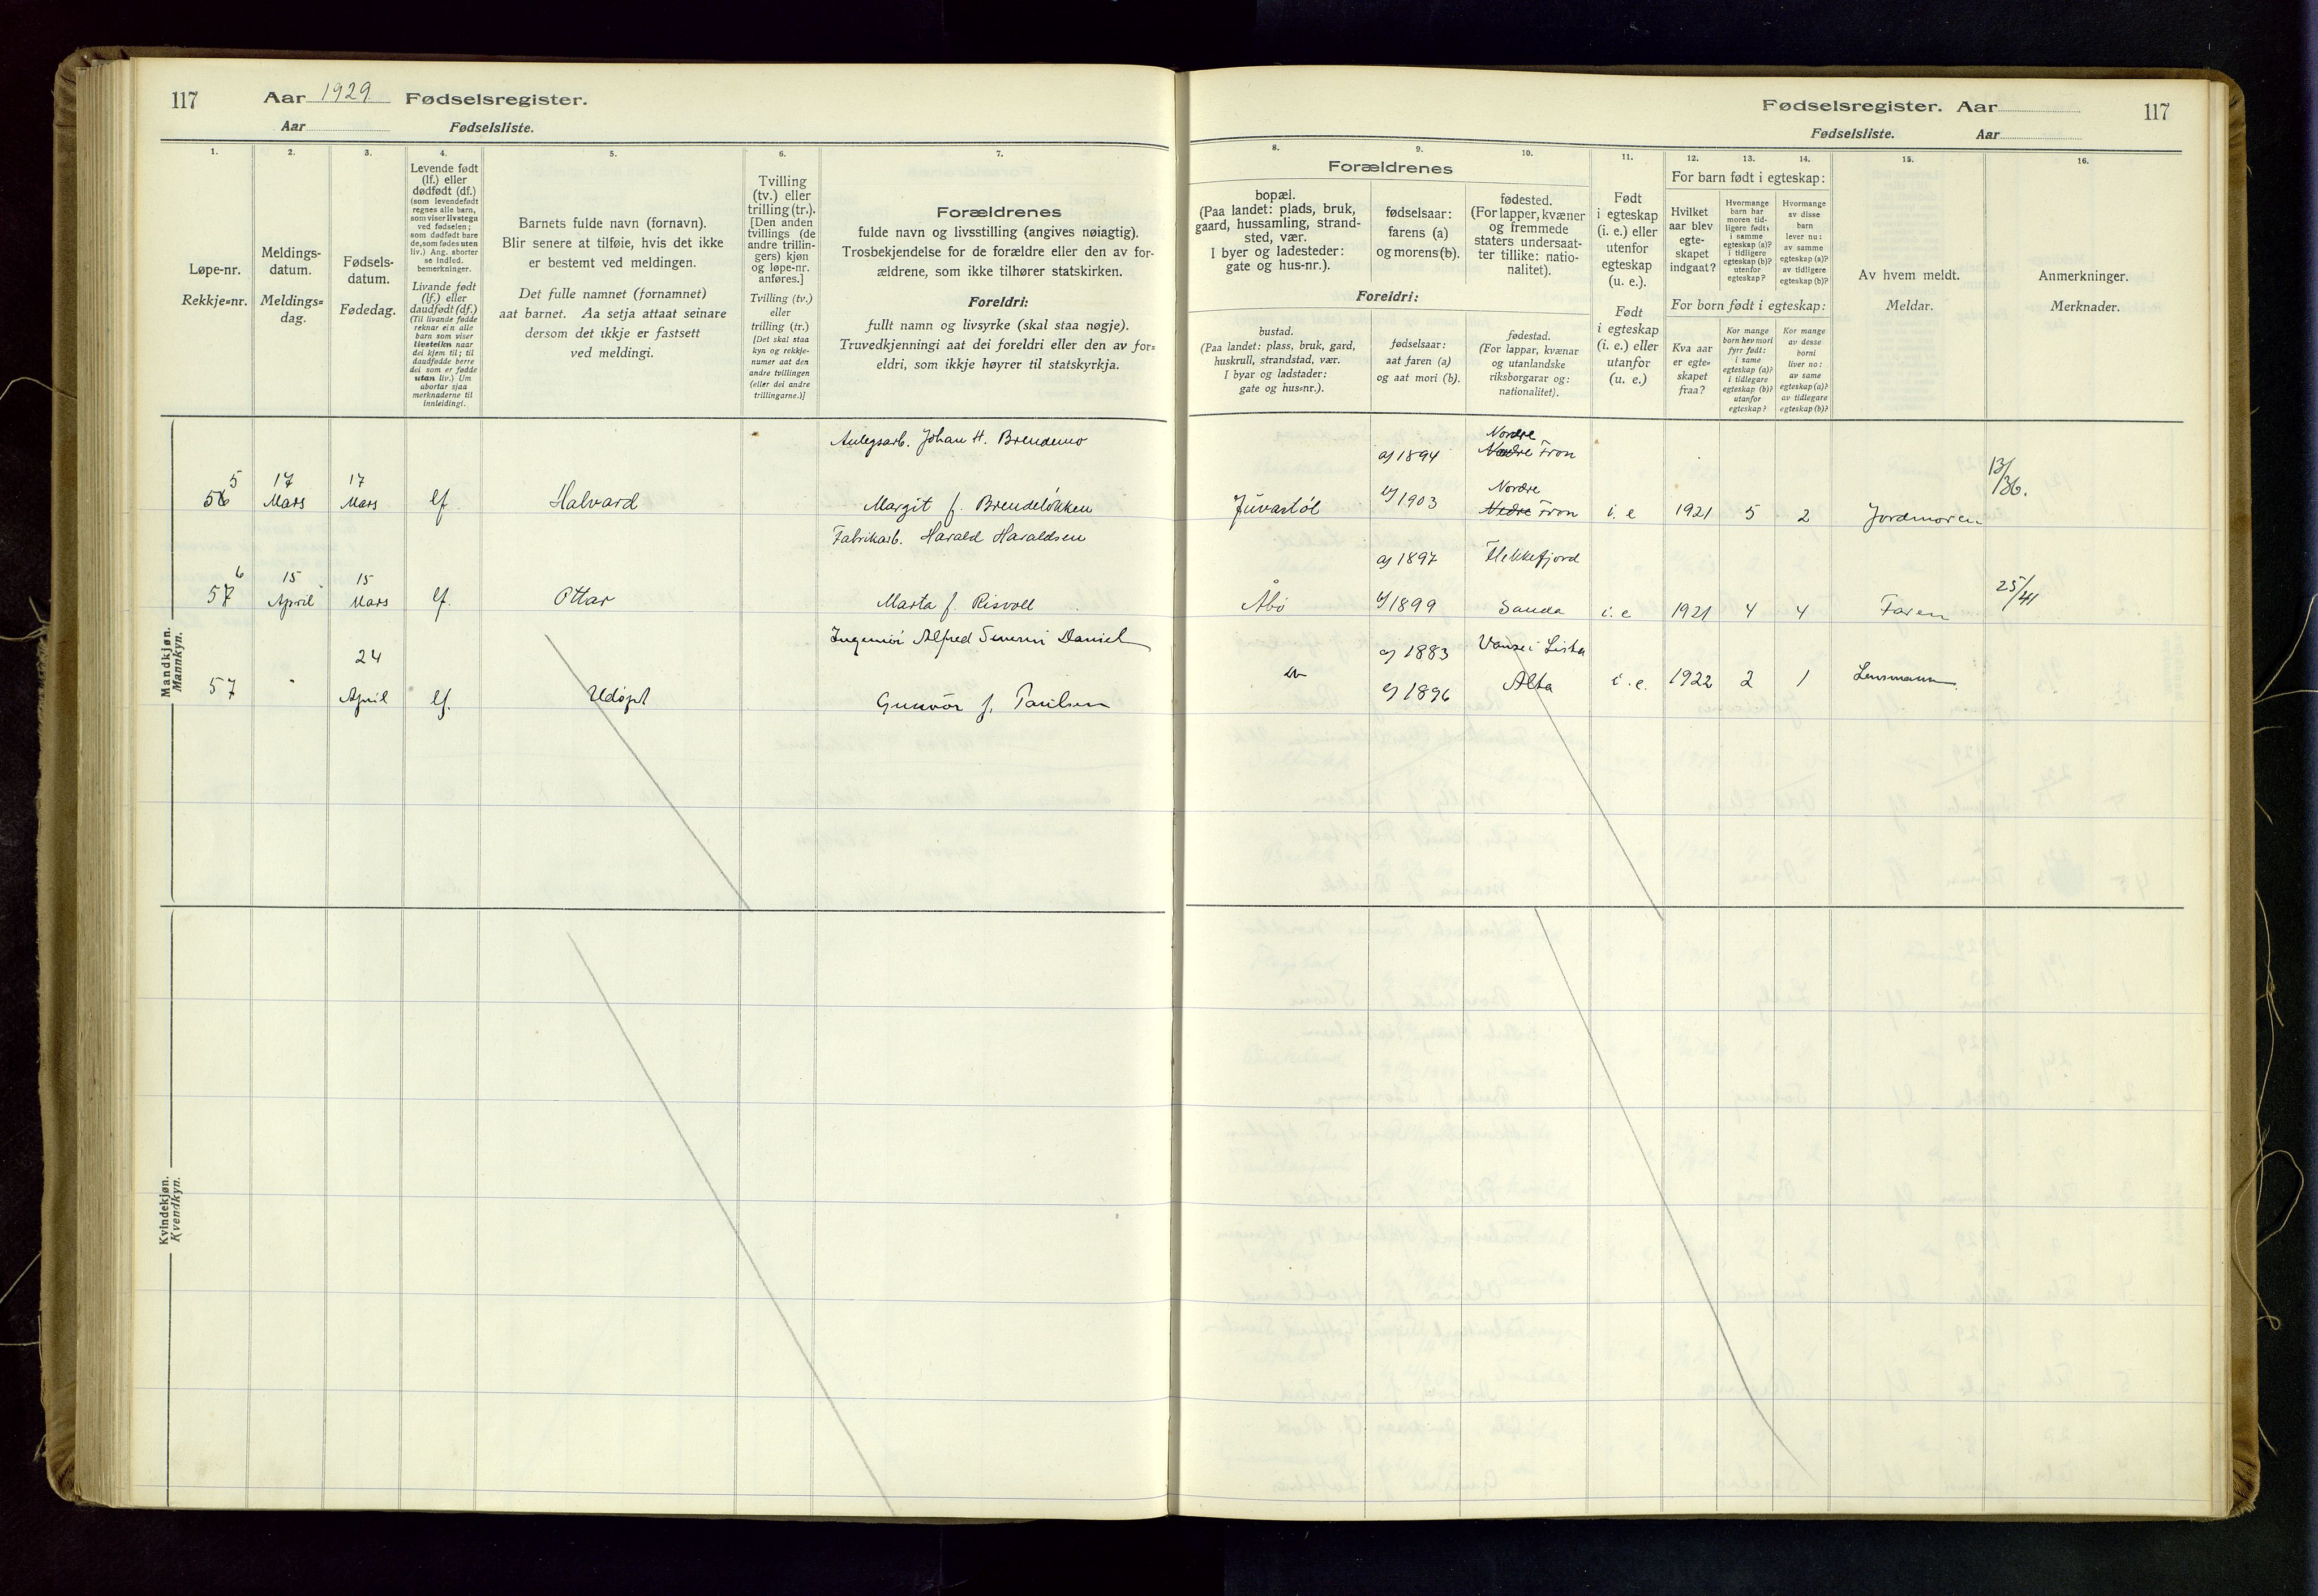 117 Aar 1929 Fødselsregister.
Aar Fødselsliste.
1. 2. 3. 4. 5. 6. 7.
Løpe-nr.
Rekkje=nr.
Meldings-
datum.
Meldings=
dag.
Fødsels-
datum.
Fødedag.
Levende født
(lf.) eller
dødfødt (df.)
(som levendefødt
regnes alle barn,
som viser livstegn
ved fødselen;
som dødfødt bare
de, som fødes uten
liv.) Ang. aborter
se indled.
bemerkninger.
Livande født
(lf.) eller
daudfødt (df.)
(Til livande fødde
reknar ein alle
barn som viser
livsteikn naar
dei kjem til; til
daudfødde berre
dei som er fødde
utan liv.) Um
abortar sjaa
merknaderne til
innleidingi.
Barnets fulde navn (fornavn).
Blir senere at tilføie, hvis det ikke
er bestemt ved meldingen.
Det fulle namnet (fornamnet)
aat barnet. Aa setja attaat seinare
dersom det ikkje er fastsett
ved meldingi.
Tvilling
(tv.) eller
trilling (tr.).
[Den anden
tvillings (de
andre trillin-
gers) kjøn
og løpe-nr.
anføres.]
Tvilling (tv.)
eller
trilling (tr.)
[Det skal staa
kyn og rekkje-
numer aat den
andre tvillingen
(eller dei andre
trillingarne.)]
Forældrenes
fulde navn og livsstilling (angives nøiagtig).
Trosbekjendelse for de forældre eller den av for-
ældrene, som ikke tilhører statskirken.
Foreldri:
fullt namn og livsyrke (skal staa nøgje).
Truvedkjenningi aat dei foreldri eller den av for=
eldri, som ikkje høyrer til statskyrkja.
Mandkjøn.
Mannkyn.
Anlegsarb. Johan H. Brendemo
5 17 17
56 Mars Mars lf Halvard Margit f. Brendeløkken
Fabrikarb. Harald Haraldsen
6 15 15
57 April Mars lf. Ottar Marta f. Risvoll
Alfred Severin Daniel
24
57 " April lf. Udøpt Gunvor f. Paulsen
Kvindekjøn.
Kvendkyn.
Fødselsregister. Aar 117
Fødselsliste. Aar
8. 9. 10. 11. 12. 13. 14. 15. 16.
Forældrenes
bopæl.
(Paa landet: plads, bruk,
gaard, hussamling, strand-
sted, vær.
I byer og ladesteder:
gate og hus-nr.).
fødselsaar:
farens (a)
og morens (b).
fødested.
(For lapper, kvæner
og fremmede
staters undersaat-
ter tillike: natio-
nalitet).
Foreldri:
bustad.
(Paa landet: plass, bruk, gard,
huskrull, strandstad, vær.
I byar og ladstader:
gate og hus=nr.).
fødselsaar:
aat faren (a)
og aat mori (b).
fødestad.
(For lappar, kvænar
og utanlandske
riksborgarar og:
nationalitet).
Født
i egteskap
(i. e.) eller
utenfor
egteskap
(u. e.).
Født
i egteskap
(i. e.) eller
utanfor
(u. e.)
For barn født i egteskap:
Hvilket
aar blev
egte-
skapet
indgaat?
Hvormange
barn har
moren tid-
ligere født:
i samme
egteskap (a)?
i tidligere
egteskap (b)?
utenfor
egteskap?
Hvormange
av disse
barn
lever nu:
av samme
egteskap (a)?
av tidligere
egteskap (b)?
For born født i egteskap:
Kva aar
er egte=
skapet
fraa?
Kor mange
born hev mori
fyrr født:
i same
egteskap (a)?
i tidlegare
egteskap (b)?
utanfor
egteskap?
Kor mange
av desse
borni
liver no:
av same
egteskap (a)?
av tidlegare
egteskap (b)?
Av hvem meldt.
Meldar.
Anmerkninger.
Merknader.
Nordre
a) 1894 Nedre Fron
13/
/36.
Nordre
Juvastøl b) 1903 Nedre Fron i. e 1921 5 2 Jordmoren
a) 1897 Flekkefjord
25/
/41
Åbø b) 1899 Sauda i. e 1921 4 4 Faren
a) 1883 Vanse i Lista
b) 1896 Alta i. e. 1922 2 1 Lensmann.